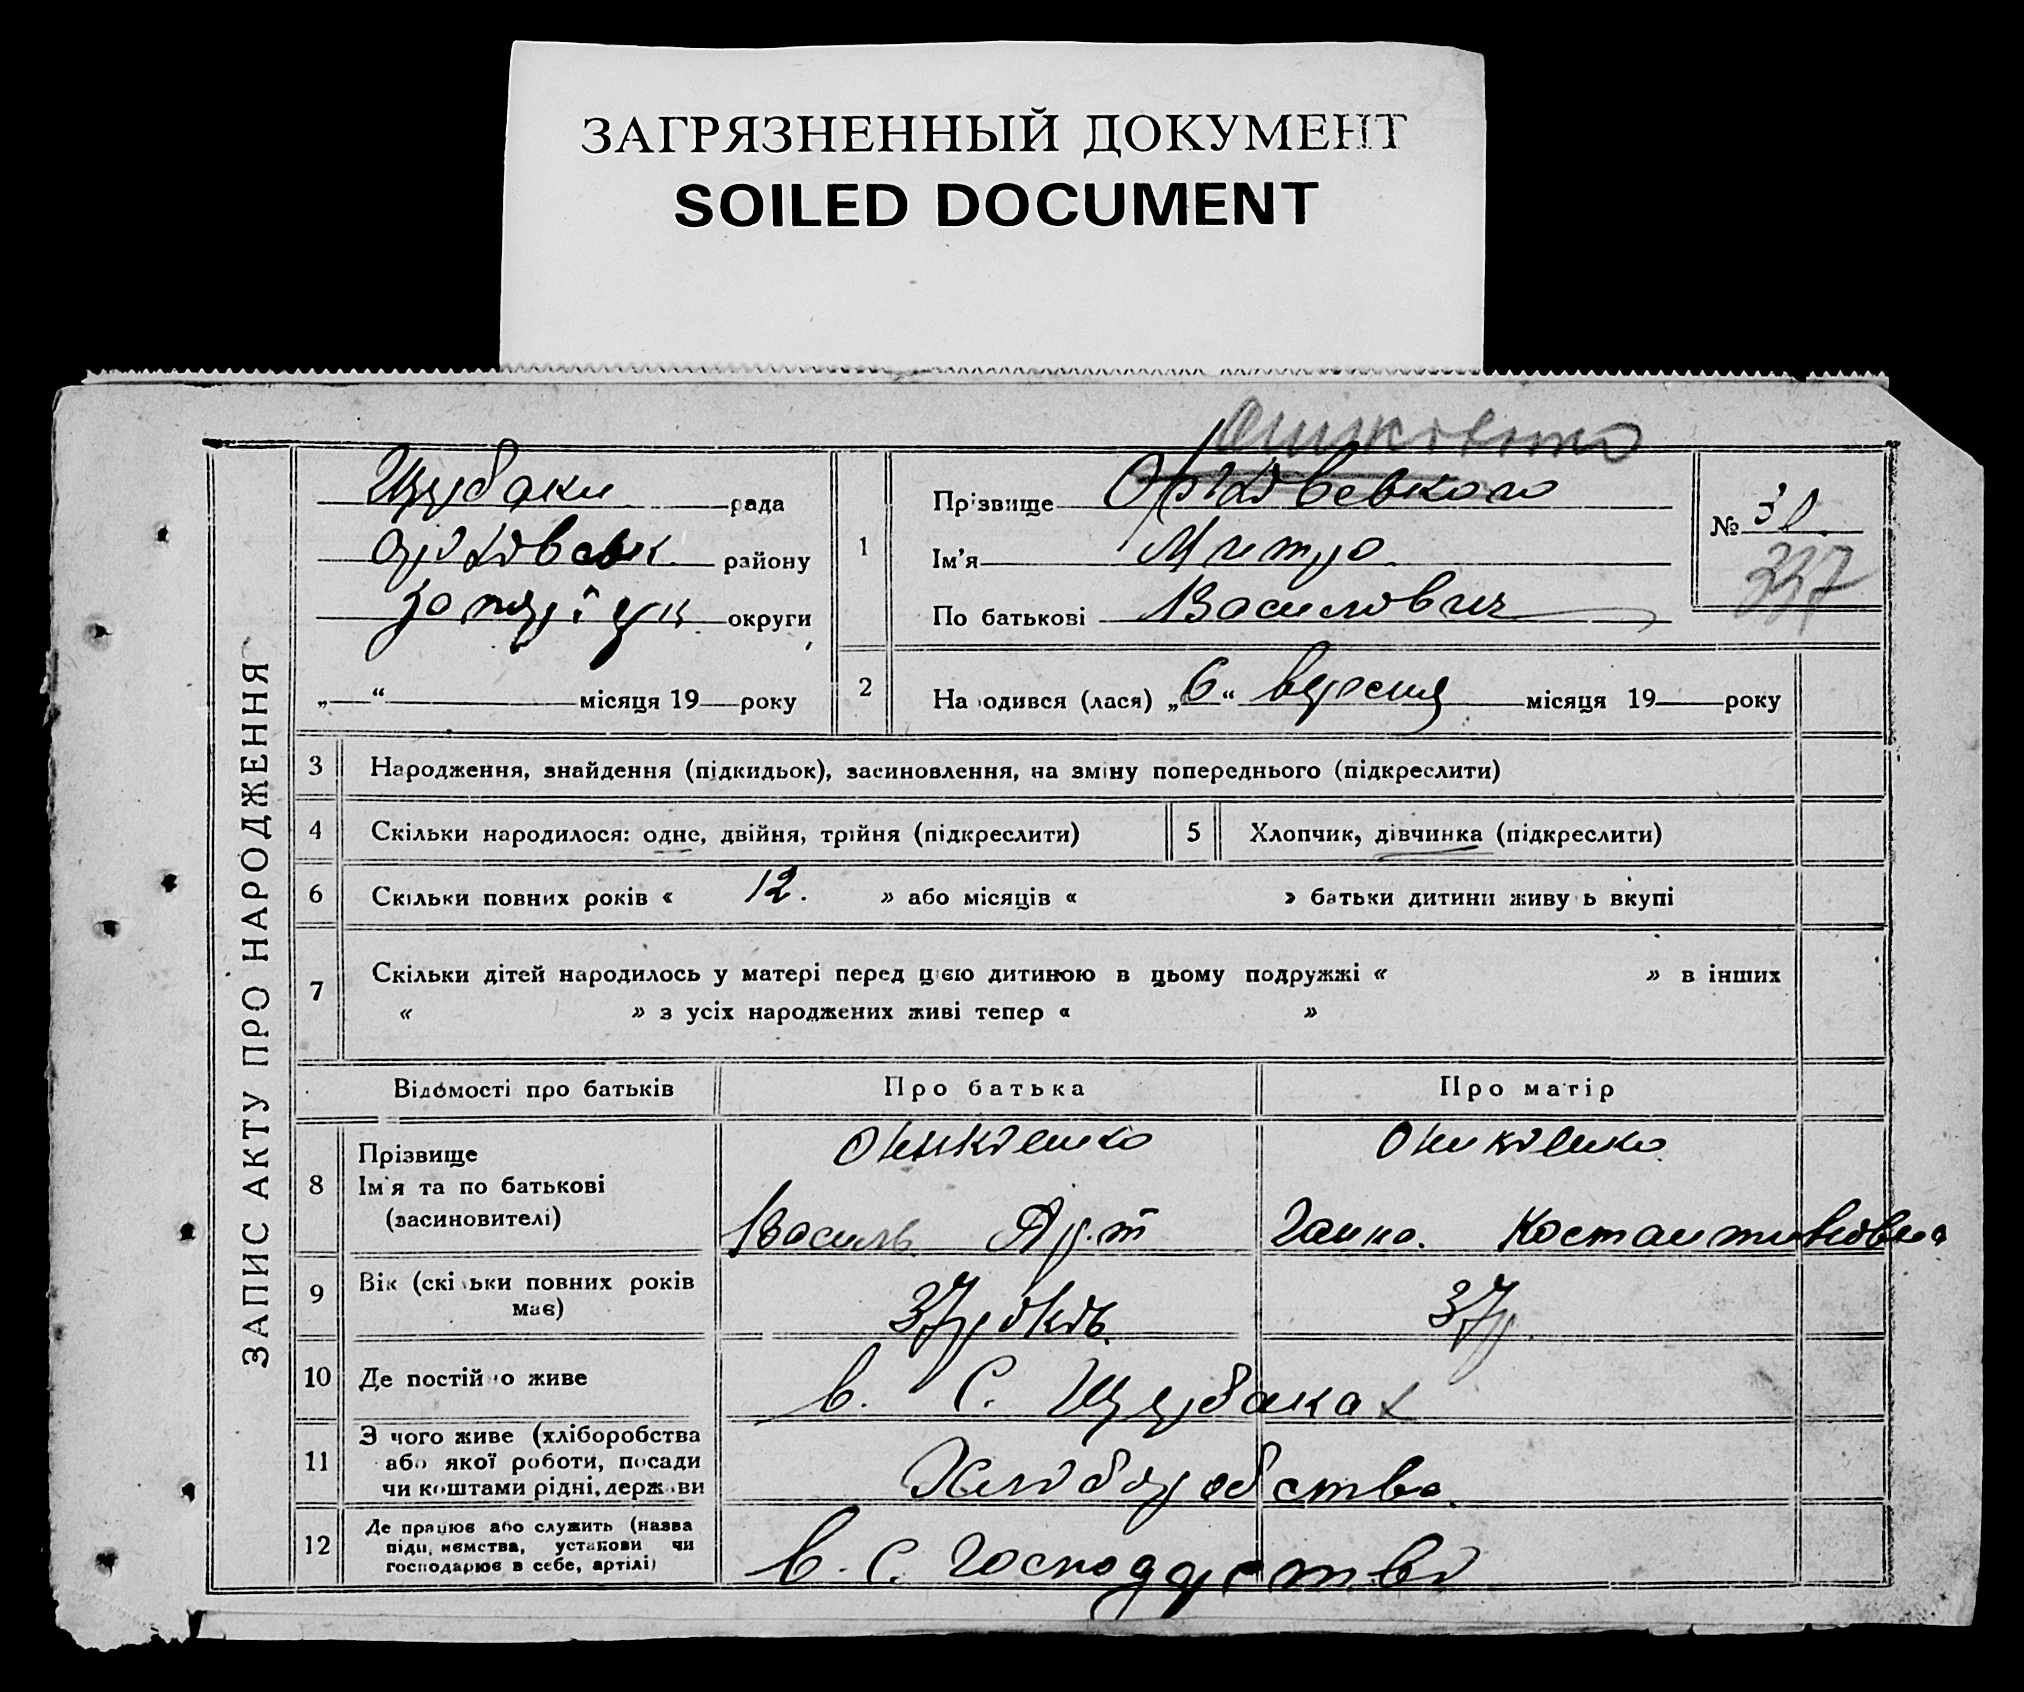 ЗАГРЯЗНЕННЫЙ ДОКУМЕНТ
SOILED DOCUMENT
ЗАПИС АКТУ ПРО НАРОДЖЕННЯ
Щербаки рада
району
округи
„ “ місяця 19 року
1
Прізвище
Ім’я Митро
По батькові Василович
№ 31
337
2
Народився (лася) „6“ вересня місяця 19 року
3 Народження, знайдення (підкидьок), засиновлення, на зміну попереднього (підкреслити)
4 Скільки народилося: одне, двійня, трійня (підкреслити)
5 Хлопчик, дівчинка (підкреслити)
6 Скільки повних років « 12. » або місяців « » батьки дитини живуть вкупі
7 Скільки дітей народилось у матері перед цією дитиною в цьому подружжі « » в інших
« » з усіх народжених живі тепер « »
Відомості про батьків Про батька Про матір
8 Прізвище Оникіенко Оникіенко
Ім’я та по батькові
(засиновителі) Василь Арт Ганна Костантиновна
9 Вік (скільки повних років
має) 37 років 37р
10 Де постійно живе в. С. Щербаках
11 З чого живе (хліборобства
або якої роботи, посади
чи коштами рідні, держави Хліборобства
12 Де працює або служить (назва
підприємства, установи чи
господарює в себе, артілі) в. С. Господарстві